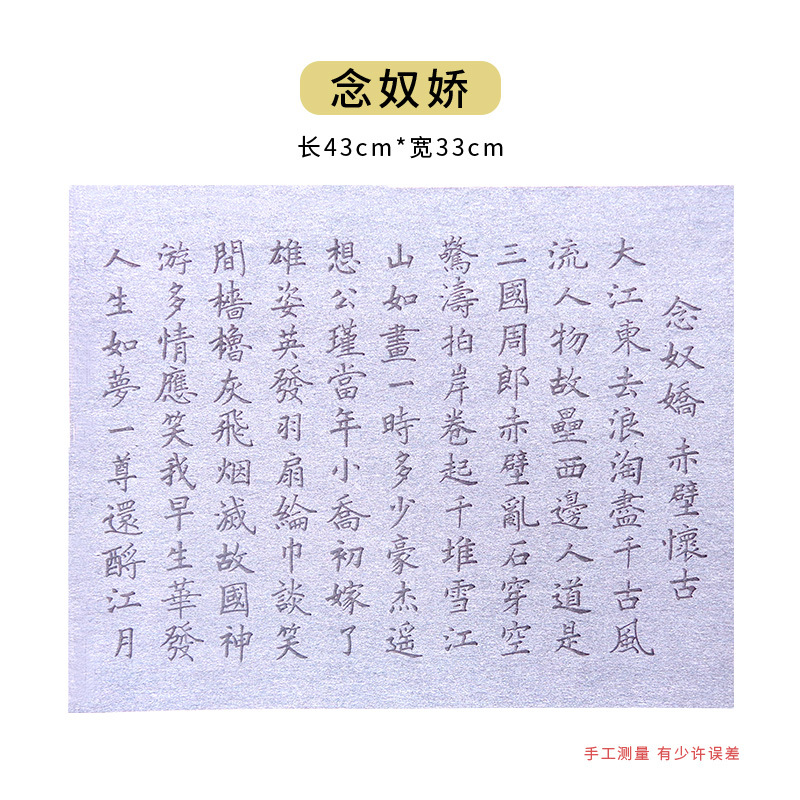 念奴娇
长43cm*宽33cm
念奴嬌 赤壁懷古
大江東去浪淘盡千古風
流人物故壘西邊人道是
三國周郎赤壁亂石穿空
驚濤拍岸卷起千堆雪江
山如畫一時多少豪杰遥
想公瑾當年小喬初嫁了
雄姿英發羽扇綸巾談笑
間檣櫓灰飛烟滅故國神
游多情應笑我早生華發
人生如夢一尊還酹江月
手工测量 有少许误差